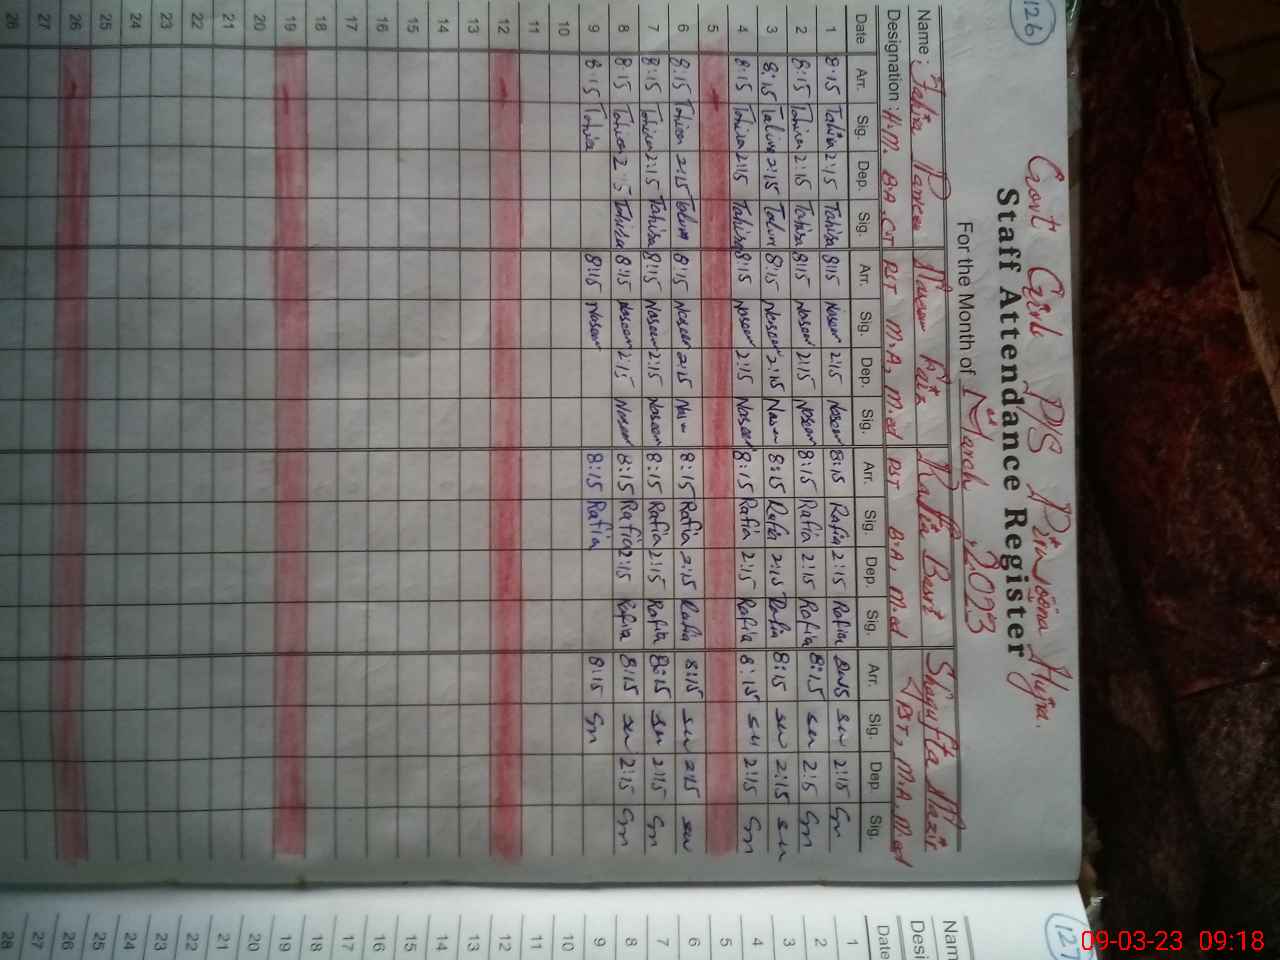 126
Govt Girls P/S Hujra.
Staff Attendance Register
For the Month of March, 2023
Name: Tahira Parveen Naseem Faiz Rafia Basri Shagufta Nazir
Designation: H.M. B.A, CT PST M.A, M.ed PST B.A, M.ed PST, M.A, M.ed
Date Arr. Sig. Dep. Sig. Arr. Sig. Dep. Sig. Arr. Sig. Dep. Sig. Arr. Sig. Dep. Sig.
1 8:15 Tahira 2:15 Tahira 8:15 Naseem 2:15 Naseem 8:15 Rafia 2:15 Rafia 8:15 Sn 2:15 Sn
2 8:15 Tahira 2:15 Tahira 8:15 Naseem 2:15 Naseem 8:15 Rafia 2:15 Rafia 8:15 Sn 2:15 Sn
3 8:15 Tahira 2:15 Tahira 8:15 Naseem 2:15 Naseem 8:15 Rafia 2:15 Rafia 8:15 Sn 2:15 Sn
4 8:15 Tahira 2:15 Tahira 8:15 Naseem 2:15 Naseem 8:15 Rafia 2:15 Rafia 8:15 Sn 2:15 Sn
5
6 8:15 Tahira 2:15 Tahira 8:15 Naseem 2:15 Naseem 8:15 Rafia 2:15 Rafia 8:15 Sn 2:15 Sn
7 8:15 Tahira 2:15 Tahira 8:15 Naseem 2:15 Naseem 8:15 Rafia 2:15 Rafia 8:15 Sn 2:15 Sn
8 8:15 Tahira 2:15 Tahira 8:15 Naseem 2:15 Naseem 8:15 Rafia 2:15 Rafia 8:15 Sn 2:15 Sn
9 8:15 Tahira 8:15 Naseem 8:15 Rafia 8:15 Sn
10
11
12
13
14
15
16
17
18
19
20
21
22
23
24
25
26
27
28
127
Nam
Desi
Date
1
2
3
4
5
6
7
8
9
10
11
12
13
14
15
16
17
18
19
20
21
22
23
24
25
26
27
28
09-03-23 09:18